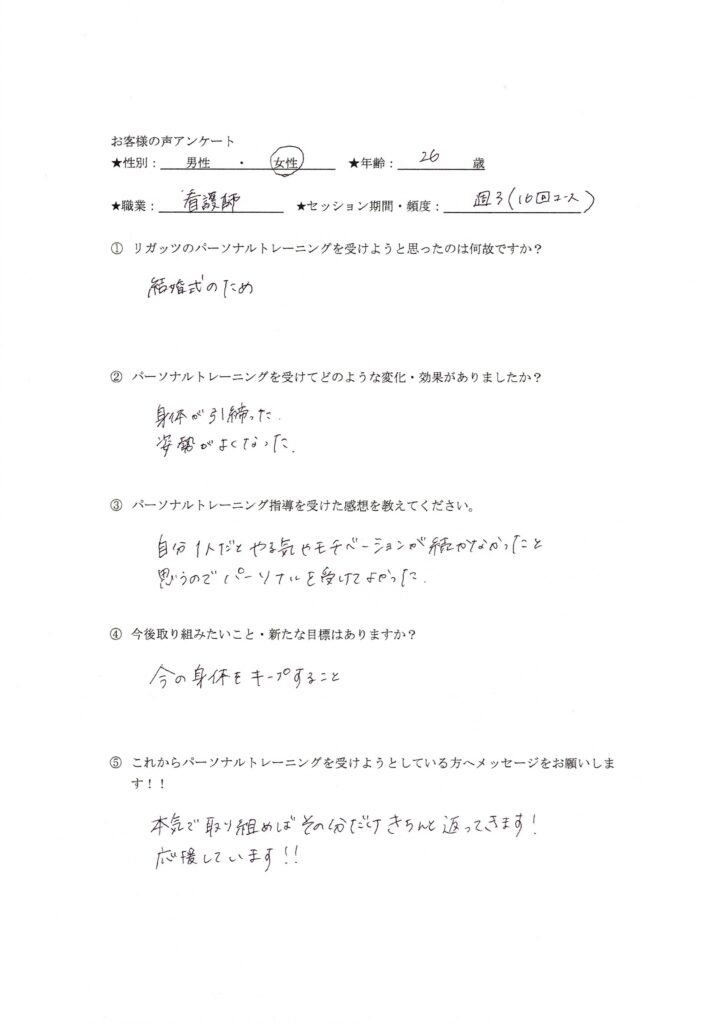 お客様の声アンケート
★性別: 男性 ・ 女性 ★年齢: 26 歳
★職業: 看護師 ★セッション期間・頻度: 週3(16回コース)
① リガッツのパーソナルトレーニングを受けようと思ったのは何故ですか？
結婚式のため
② パーソナルトレーニングを受けてどのような変化・効果がありましたか？
身体が引締った.
姿勢がよくなった.
③ パーソナルトレーニング指導を受けた感想を教えてください。
自分1人だとやる気やモチベーションが続かなかったと
思うのでパーソナルを受けてよかった.
④ 今後取り組みたいこと・新たな目標はありますか？
今の身体をキープすること
⑤ これからパーソナルトレーニングを受けようとしている方へメッセージをお願いしま
す！！
本気で取り組めばその分だけきちんと返ってきます!
応援しています!!